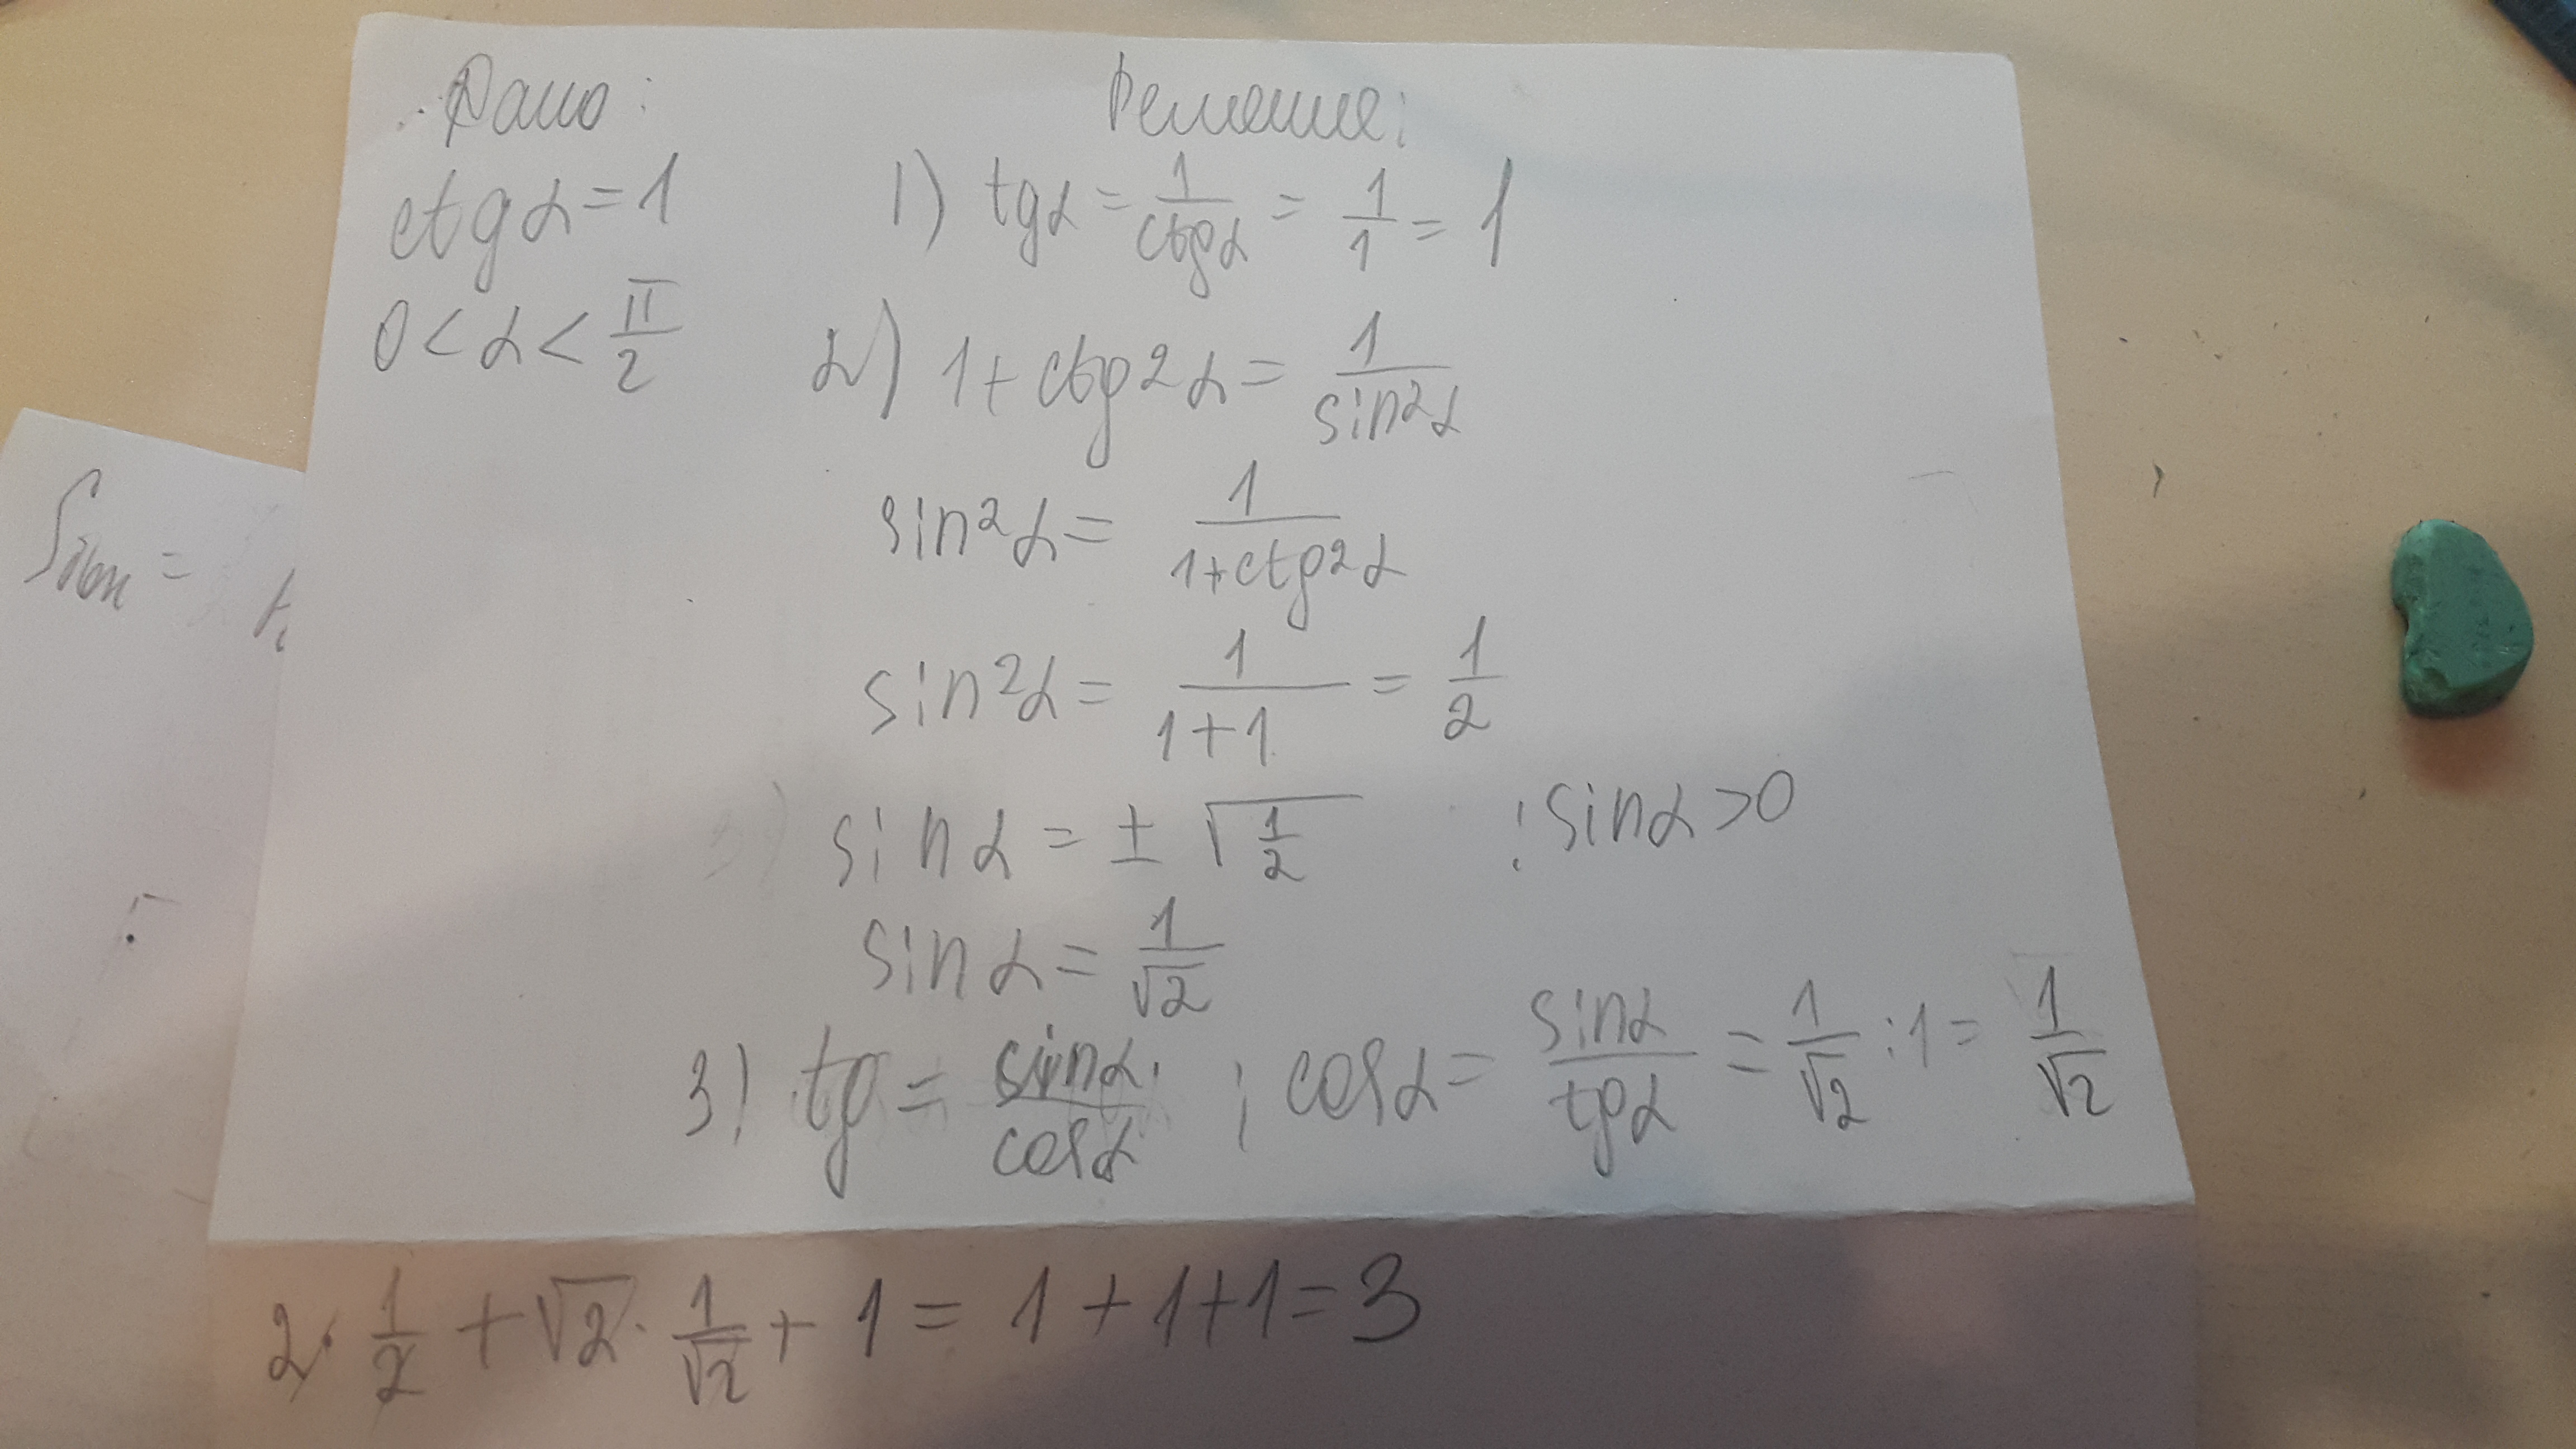 Дано: Решение:
ctgα=1 1) tgα = 1/ctgα = 1/1 = 1
0<α<π/2 2) 1+ctg²α = 1/sin²α
sin²α = 1/(1+ctg²α)
sin²α = 1/(1+1) = 1/2
sinα = ± √(1/2) ; sinα>0
sinα = 1/√2
3) tg = sinα/cosα ; cosα = sinα/tgα = 1/√2 : 1 = 1/√2
2 · 1/2 + √2 · 1/√2 + 1 = 1+1+1=3